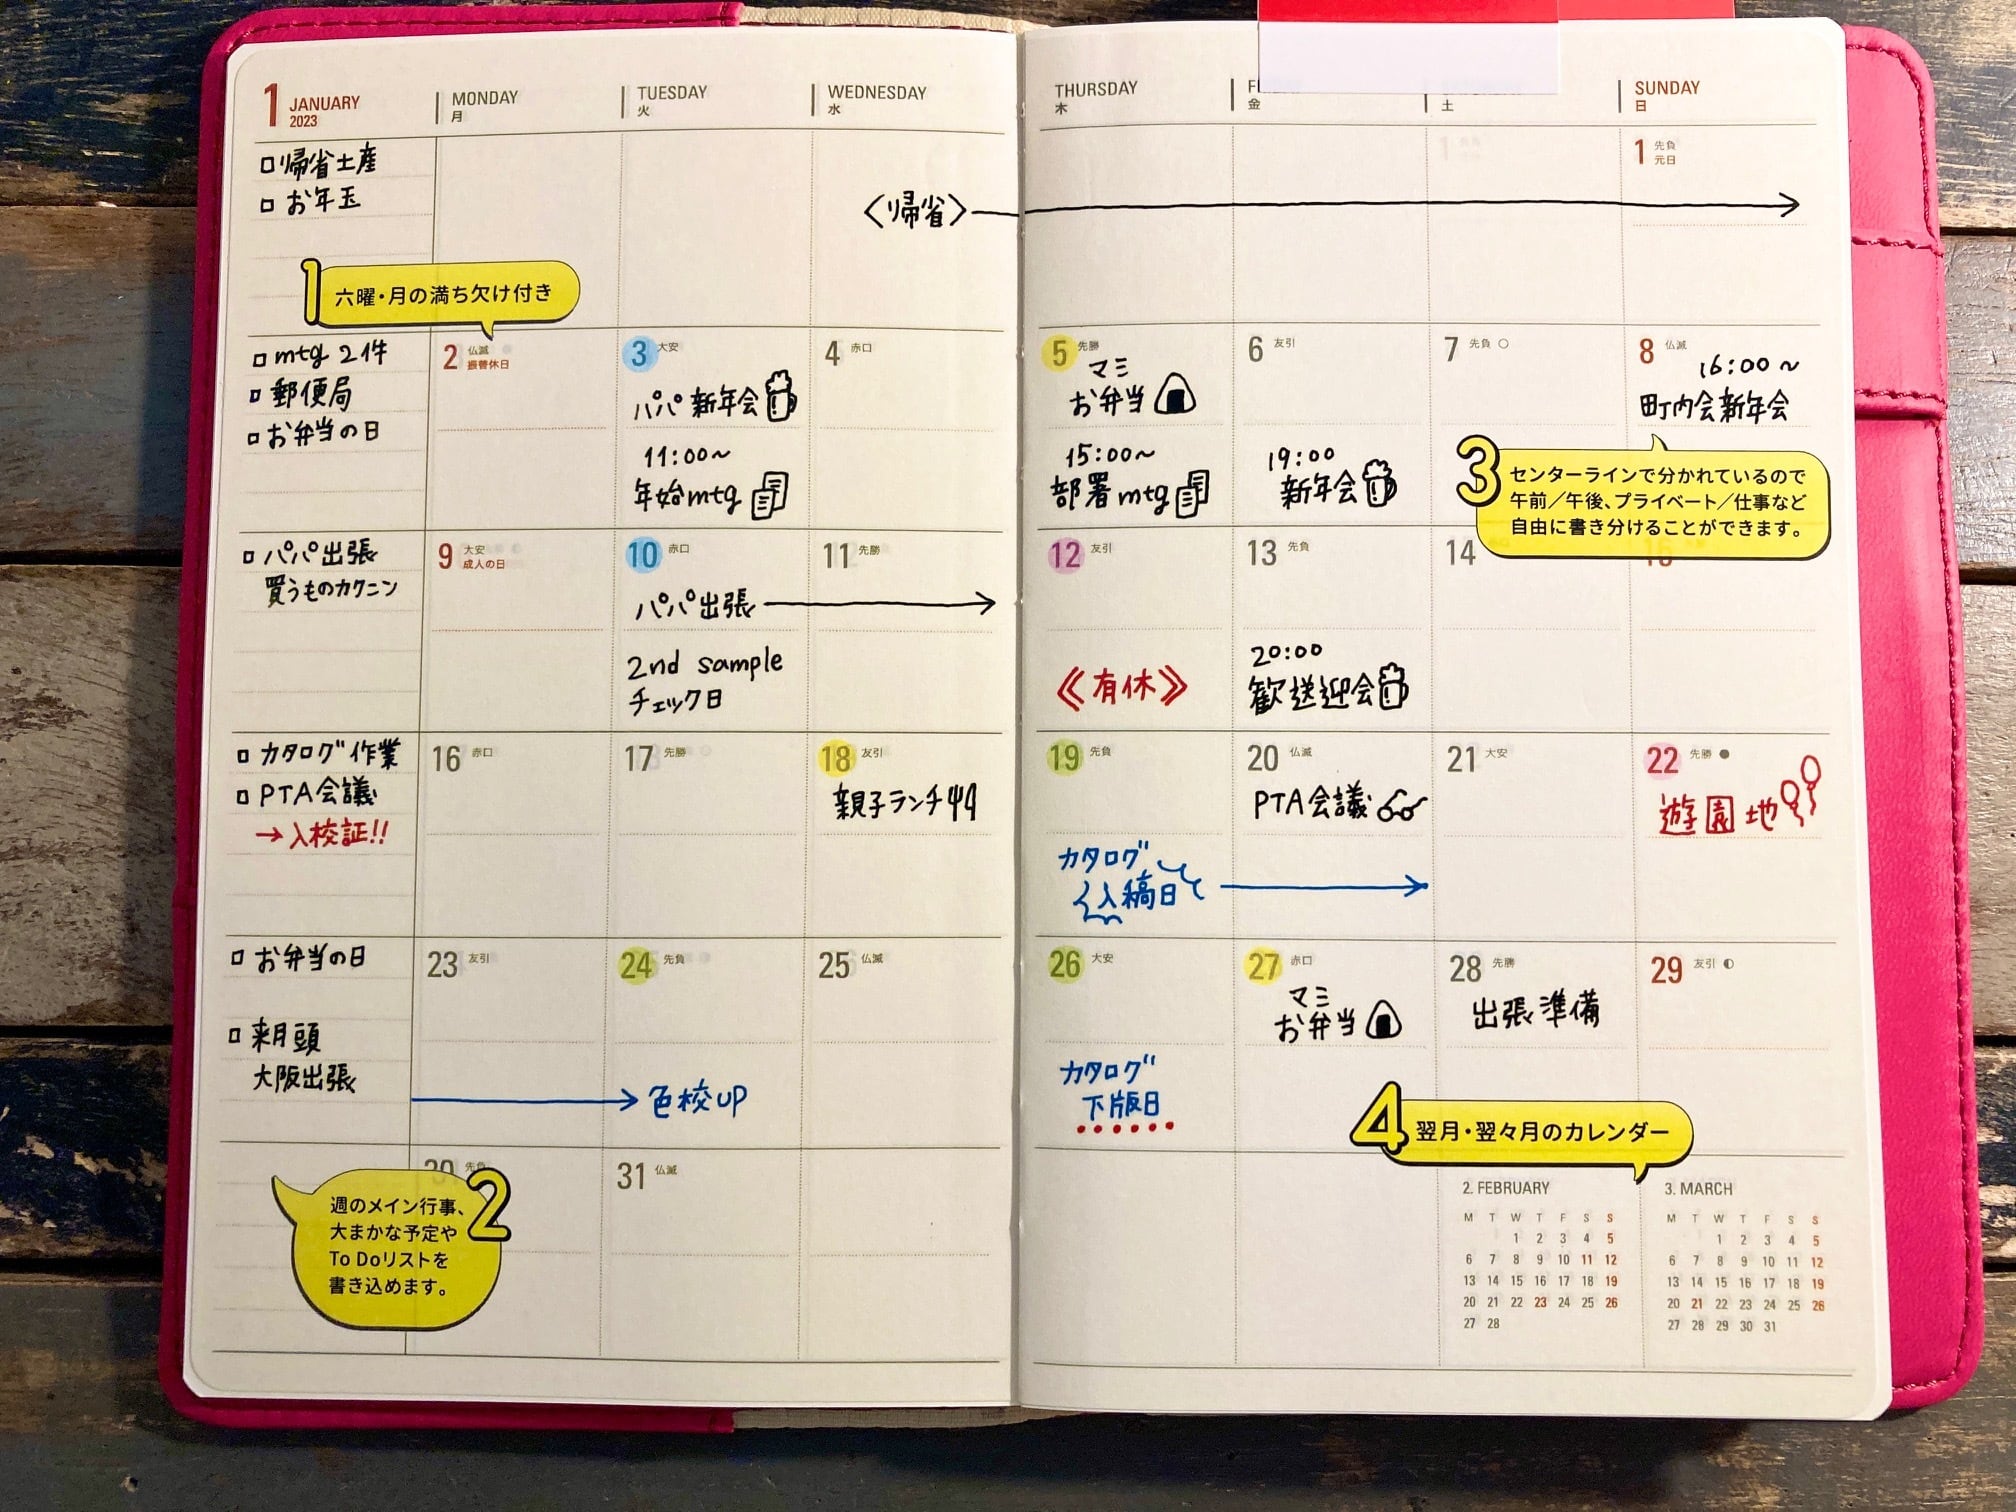 1 JANUARY
2023
MONDAY
月
TUESDAY
火
WEDNESDAY
水
THURSDAY
木
金
土
SUNDAY
日
□帰省土産
□お年玉
〈帰省〉
1 先負
元日
1 六曜・月の満ち欠け付き
□mtg 2件
□郵便局
□お弁当の日
2 仏滅
振替休日
3 大安
パパ新年会
11:00〜
年始mtg
4 赤口
5 先勝
マミ
お弁当
15:00〜
部署mtg
6 友引
19:00
新年会
7 先負 ○
8 仏滅
16:00〜
町内会新年会
3 センターラインで分かれているので
午前／午後、プライベート／仕事など
自由に書き分けることができます。
□パパ出張
買うものカクニン
9 大安
成人の日
10 赤口
パパ出張→
2nd sample
チェック日
11 先勝
12 友引
《有休》
13 先負
20:00
歓送迎会
14
15
□カタログ作業
□PTA会議
→入校証!!
16 赤口
17 先勝
18 友引
親子ランチ
19 先負
カタログ
入稿日→
20 仏滅
PTA会議
21 大安
22 先勝 ●
遊園地
□お弁当の日
□来月頭
大阪出張
23 友引
24 先負
→色校UP
25 仏滅
26 大安
カタログ
下版日
27 赤口
マミ
お弁当
28 先勝
出張準備
29 友引 ◐
4 翌月・翌々月のカレンダー
30 先負
2 週のメイン行事、
大まかな予定や
To Doリストを
書き込めます。
31 仏滅
2. FEBRUARY
M T W T F S S
1 2 3 4 5
6 7 8 9 10 11 12
13 14 15 16 17 18 19
20 21 22 23 24 25 26
27 28
3. MARCH
M T W T F S S
1 2 3 4 5
6 7 8 9 10 11 12
13 14 15 16 17 18 19
20 21 22 23 24 25 26
27 28 29 30 31